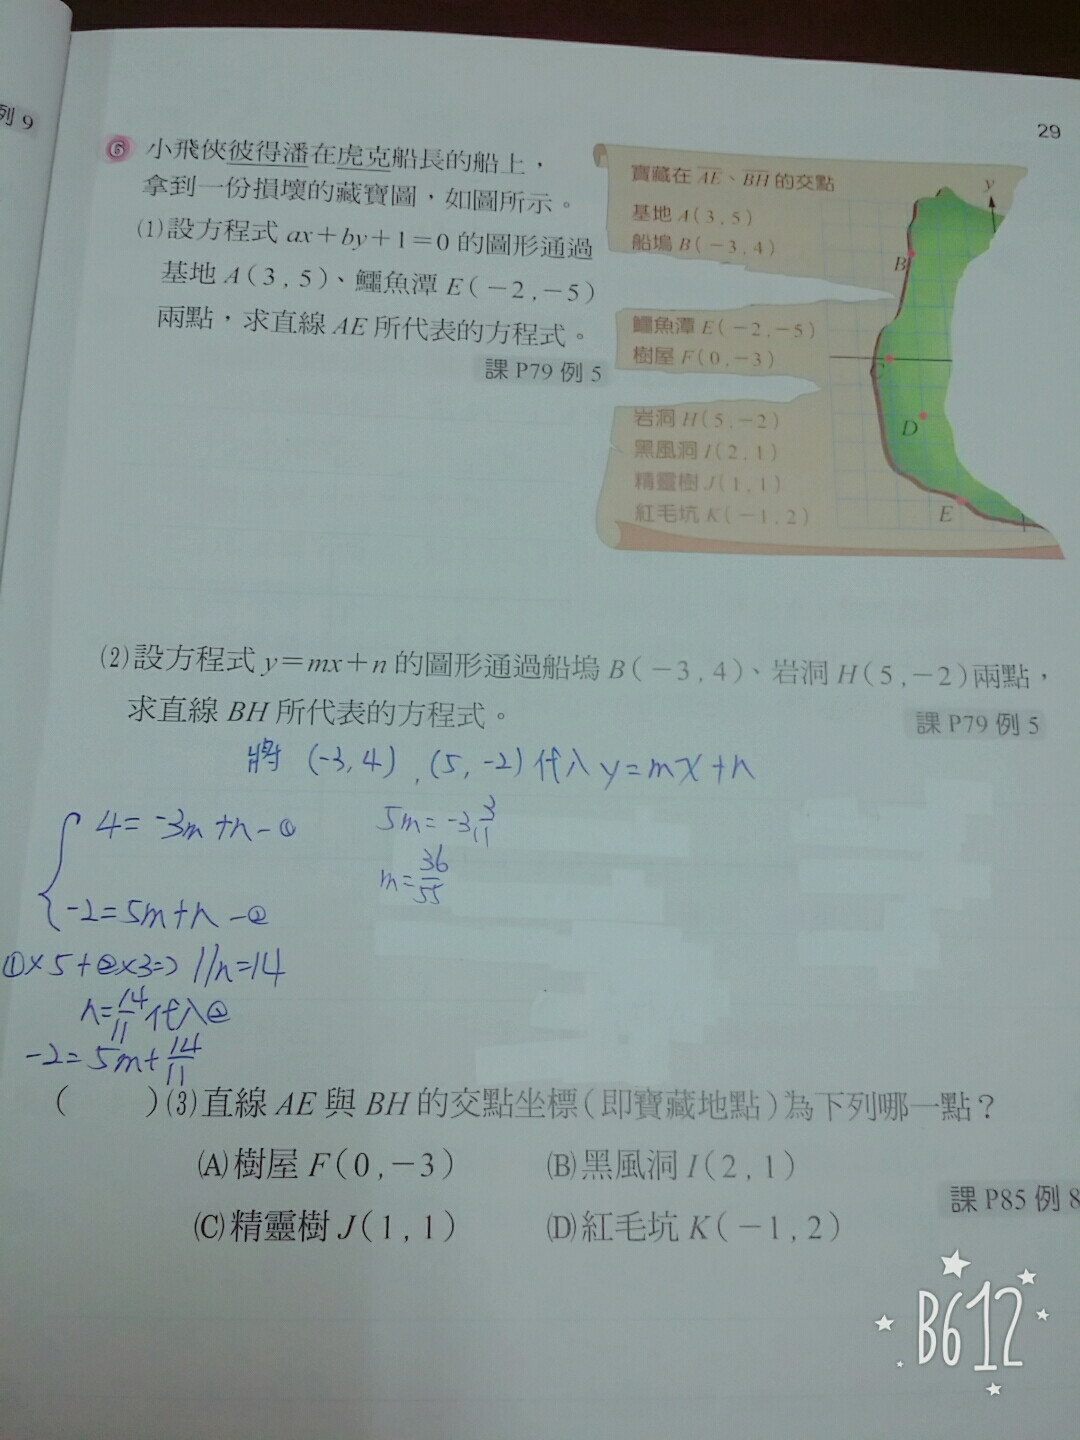 列 9
29
6 小飛俠彼得潘在虎克船長的船上，
拿到一份損壞的藏寶圖，如圖所示。
(1)設方程式 ax+by+1=0 的圖形通過
基地 A(3,5)、鱷魚潭 E(-2,-5)
兩點，求直線 AE 所代表的方程式。
課 P79 例 5
寶藏在 AE、BH 的交點
基地 A(3,5)
船塢 B(-3,4)
鱷魚潭 E(-2,-5)
樹屋 F(0,-3)
岩洞 H(5,-2)
黑風洞 I(2,1)
精靈樹 J(1,1)
紅毛坑 K(-1,2)
y
B
C
D
E
(2)設方程式 y=mx+n 的圖形通過船塢 B(-3,4)、岩洞 H(5,-2)兩點，
求直線 BH 所代表的方程式。
課 P79 例 5
將 (-3,4),(5,-2)代入 y=mx+n
4=-3m+n-①
-2=5m+n-②
①×5+②×3=>11n=14
n=14/11代入②
-2=5m+14/11
5m=-3 3/11
m=36/55
( )(3)直線 AE 與 BH 的交點坐標(即寶藏地點)為下列哪一點？
(A)樹屋 F(0,-3) (B)黑風洞 I(2,1)
課 P85 例 8
(C)精靈樹 J(1,1) (D)紅毛坑 K(-1,2)
B612